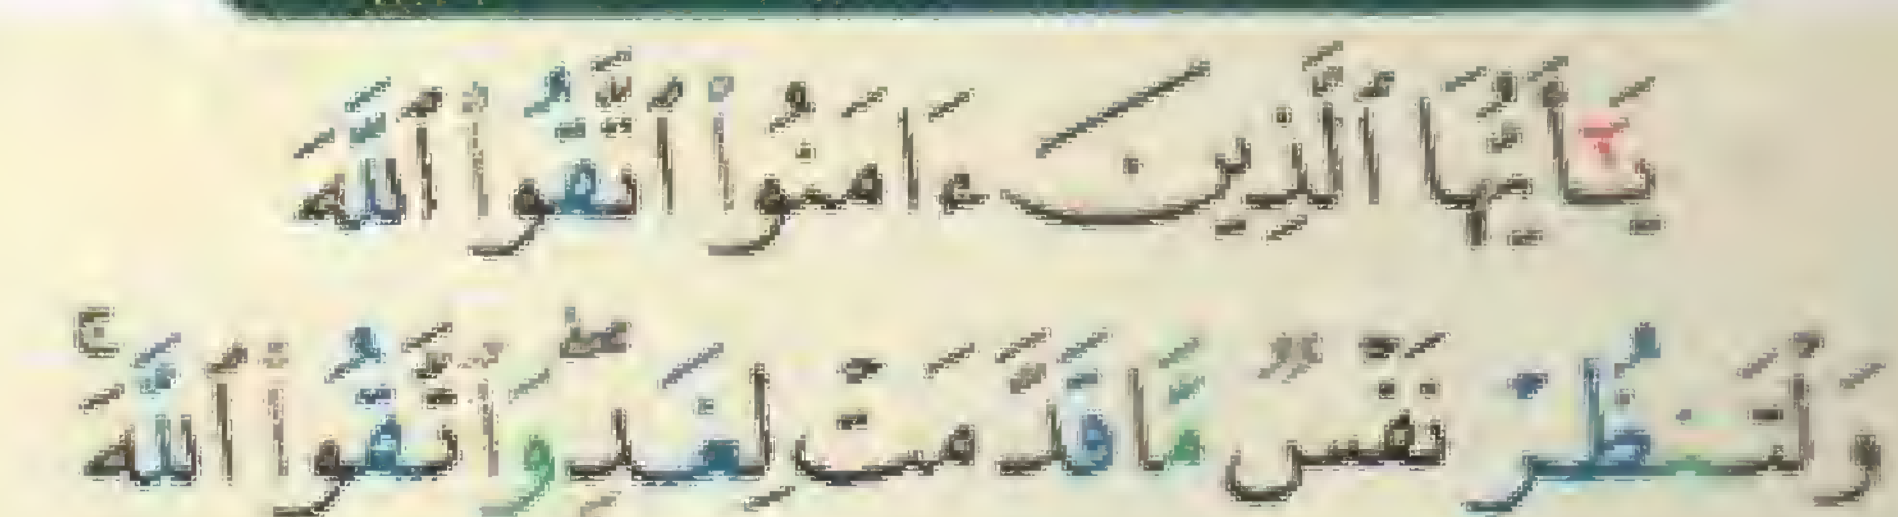 يَٰٓأَيُّهَا ٱلَّذِينَ ءَامَنُوا۟ ٱتَّقُوا۟ ٱللَّهَ
وَلْتَنظُرْ نَفْسٌ مَّا قَدَّمَتْ لِغَدٍ ۖ وَٱتَّقُوا۟ ٱللَّهَ ۚ